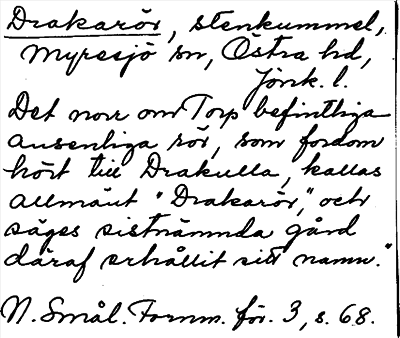 Drakarör, stenkummel,
Myresjö sn, Östra hd,
Jönk. l.
Det norr om Torp befintliga
ansenliga rör, som fordom
hört till Drakulla, kallas
allmänt "Drakarör", och
säges sistnämnda gård
däraf erhållit sitt namn."
N. Smål. Fornm. för. 3, s. 68.